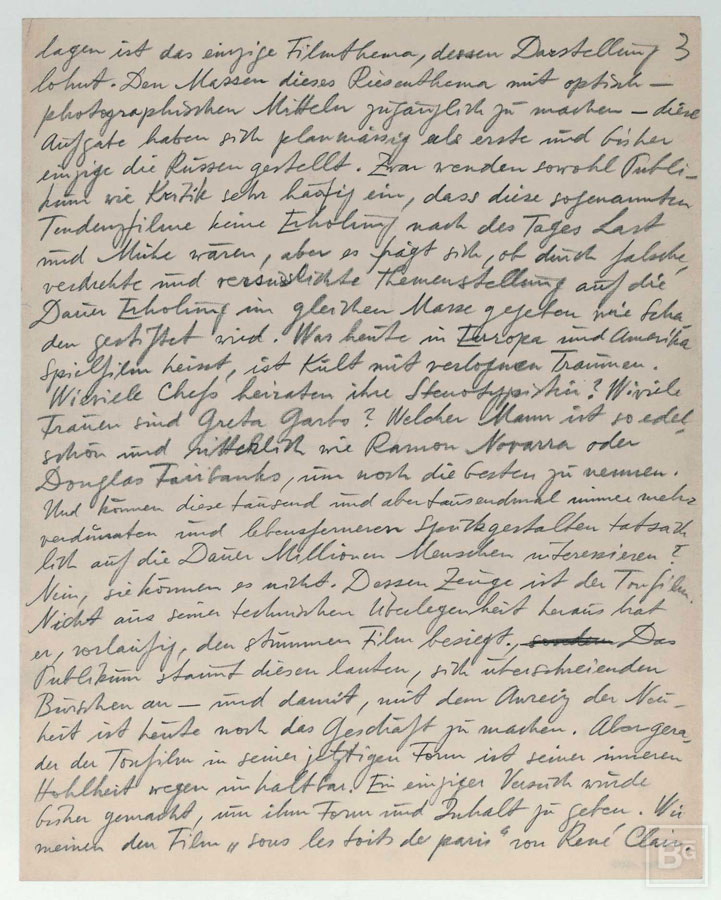 lagen ist das einzige Filmthema, dessen Darstellung 3
lohnt. Den Massen dieses Riesenthema mit optisch-
photographischen Mitteln zugänglich zu machen – diese
Aufgabe haben sich planmässig als erste und bisher
einzige die Russen gestellt. Zwar wenden sowohl Publi-
kum wie Kritik sehr häufig ein, dass diese sogenannten
Tendenzfilme keine Erholung nach des Tages Last
und Mühe wären, aber es frägt sich, ob durch falsche,
verdrehte und versüsslichte Themenstellung auf die
Dauer Erholung im gleichen Masse gegeben wie Scha
den gestiftet wird. Was heute in Europa und Amerika
Spielfilm heisst, ist Kult mit verlognen Träumen.
Wieviele Chefs heiraten ihre Stenotypistin? Wieviele
Frauen sind Greta Garbo? Welcher Mann ist so edel,
schön und ritterlich wie Ramon Novarra oder
Douglas Fairbanks, um noch die besten zu nennen.
Und können diese tausend und abertausendmal immer mehr
verdünnten und lebensferneren Spukgestalten tatsäch
lich auf die Dauer Millionen Menschen interessieren?
Nein, sie können es nicht. Dessen Zeuge ist der Tonfilm.
Nicht aus seiner technischen Überlegenheit heraus hat
er, vorläufig, den stummen Film besiegt, sondern Das
Publikum staunt diesen lauten, sich überschreienden
Burschen an – und damit, mit dem Anreiz der Neu-
heit ist heute noch das Geschäft zu machen. Aber gera-
de der Tonfilm in seiner jetztigen Form ist seiner inneren
Hohlheit wegen unhaltbar. Ein einziger Versuch wurde
bisher gemacht, um ihm Form und Inhalt zu geben. Wir
meinen den Film „sous les toits de paris" von René Clair.
BG